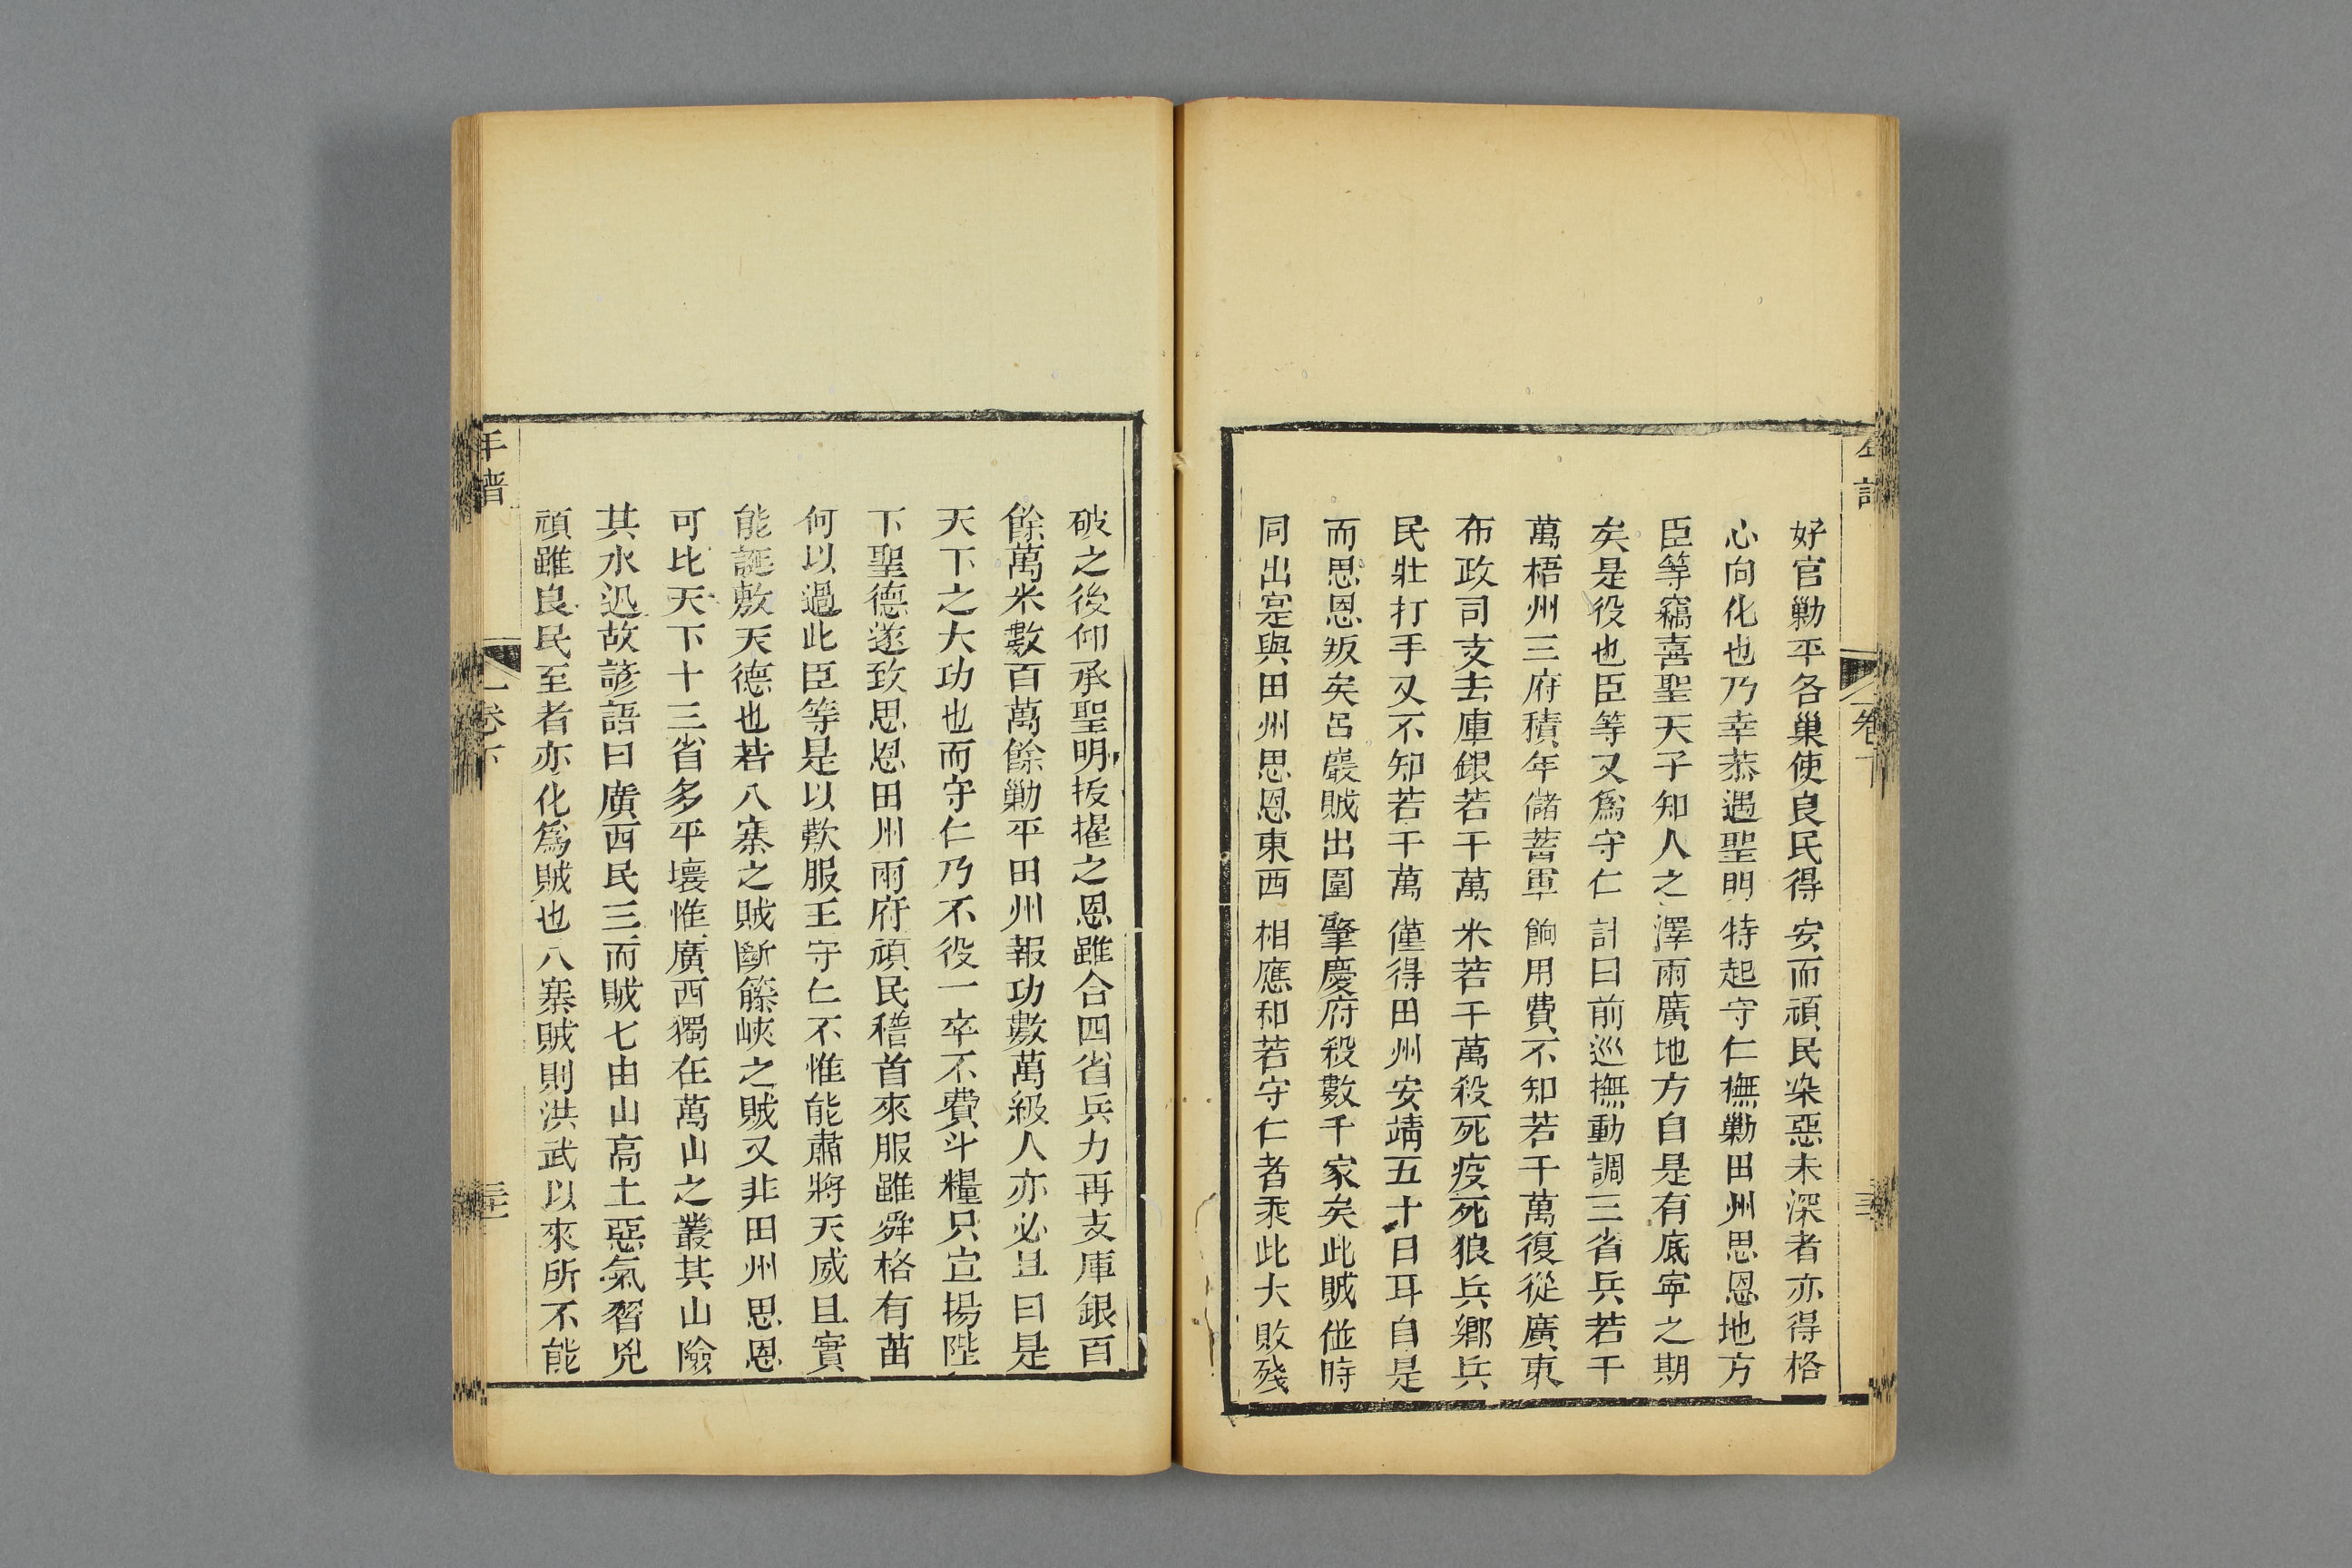 好官勦平各巢使良民得安而頑民染惡未深者亦得格
心向化也乃幸恭遇聖明特起守仁撫勦田州思恩地方
臣等竊喜聖天子知人之澤雨廣地方自是有底寜之期
矣是役也臣等又爲守仁計曰前巡撫動調三省兵若干
萬梧州三府積年儲蓄軍餉用費不知若干萬復從廣東
布政司支去庫銀若干萬米若干萬殺死疫死狼兵鄉兵
民壯打手又不知若干萬僅得田州安靖五十日耳自是
而思恩叛矣呂巖賊出圍肇慶府殺數千家矣此賊倂時
同出寔與田州思恩東西相應和若守仁者乘此大敗殘
破之後仰承聖明拔擢之恩雖合四省兵力再支庫銀百
餘萬米數百萬餘勦平田州報功數萬級人亦必且曰是
天下之大功也而守仁乃不役一卒不費斗糧只宣揚陛
下聖德遂致思恩田州兩府頑民稽首來服雖舜格有苗
何以過此臣等是以歎服王守仁不惟能肅將天威且實
能誕敷天德也若八寨之賊斷籐峽之賊又非田州思恩
可比天下十三省多平壤惟廣西獨在萬山之叢其山險
其水迅故諺語曰廣西民三而賊七由山高土惡氣習兇
頑雖良民至者亦化爲賊也八寨賊則洪武以來所不能
年譜
卷下